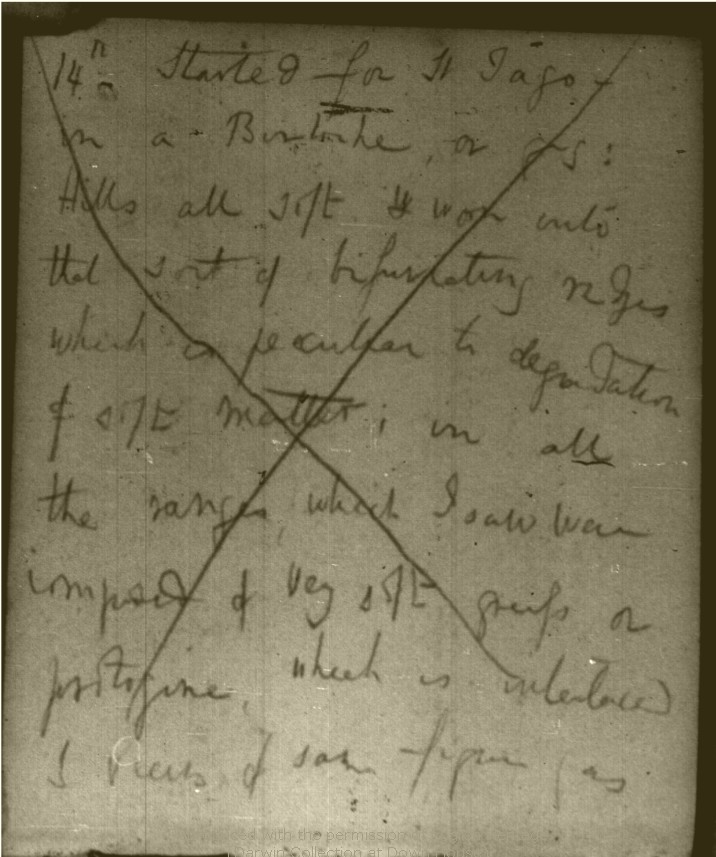 14th Started for St Jago
in a Birloche, or gig:
Hills all soft & worn into
that sort of bifurcating ridges
which is peculiar to degradation
of soft matter; in all
the ranges which I saw were
composed of very soft gneiss or
protogine, which is interlaced
of same figure as
with the permission
Darwin Collection at Dow